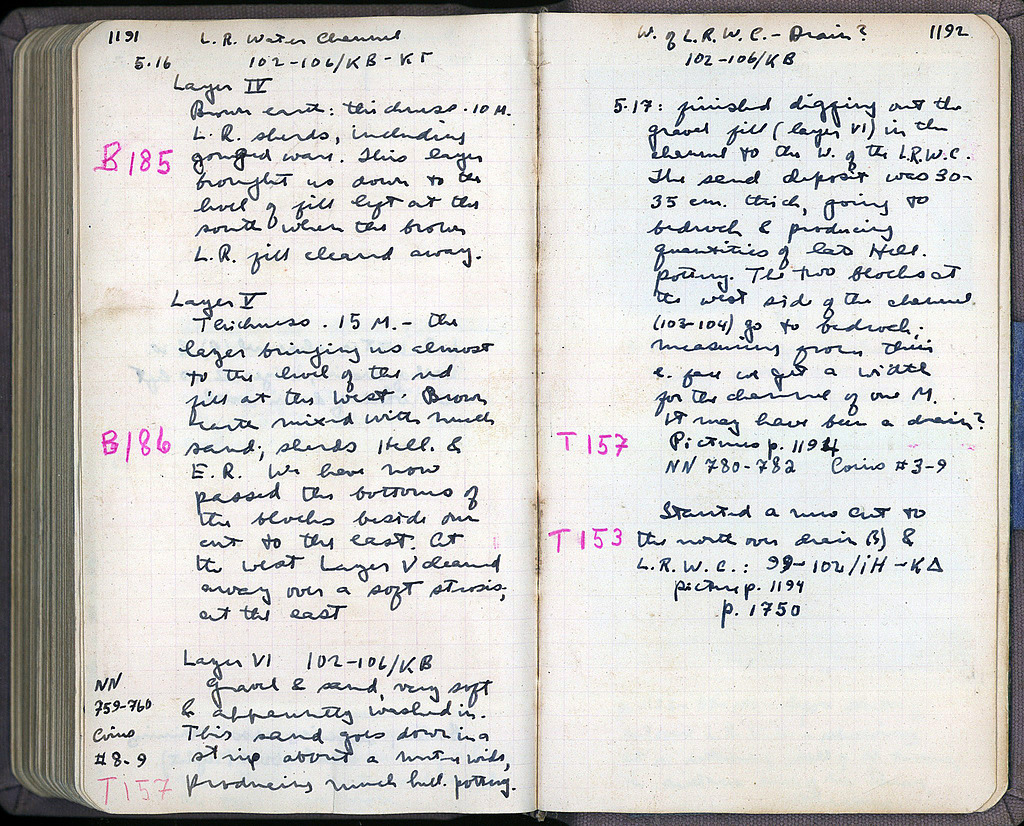 1191 L.R. Water Channel
5.16 102-106/KB-KΓ
Layer IV
Brown earth: thickness .10 M.
L.R. sherds, including
B185 gouged ware. This layer
brought us down to the
level of fill left at the
south when the brown
L.R. fill cleared away.
Layer V
Thickness .15 M. - the
layer bringing us almost
to the level of the red
fill at the west. Brown
earth mixed with much
B186 sand; sherds Hell. &
E.R. We have now
passed the bottoms of
the blocks beside our
cut to the east. At
the west Layer V cleared
away over a soft strosis;
at the east
Layer VI 102-106/KB
NN Gravel & sand, very soft
759-760 & apparently washed in.
Coins This sand goes down in a
#8-9 strip about a meter wide,
T157 producing much hell. pottery.
W. of L.R.W.C. - Drain? 1192
102-106/KB
5.17: finished digging out the
gravel fill (layer VI) in the
channel to the W. of the L.R.W.C.
The sand deposit was 30-
35 cm. thick, going to
bedrock & producing
quantities of late Hell.
pottery. The two blocks at
the west side of the channel
(103-104) go to bedrock;
measuring from their
e. face we get a width
for the channel of one M.
It may have been a drain?
T157 Pictures p. 1194
NN 780-782 Coins #3-9
Started a new cut to
T153 the north over drain B) &
L.R.W.C.: 99-102/ΙΗ-ΚΔ
picture p. 1194
p. 1750